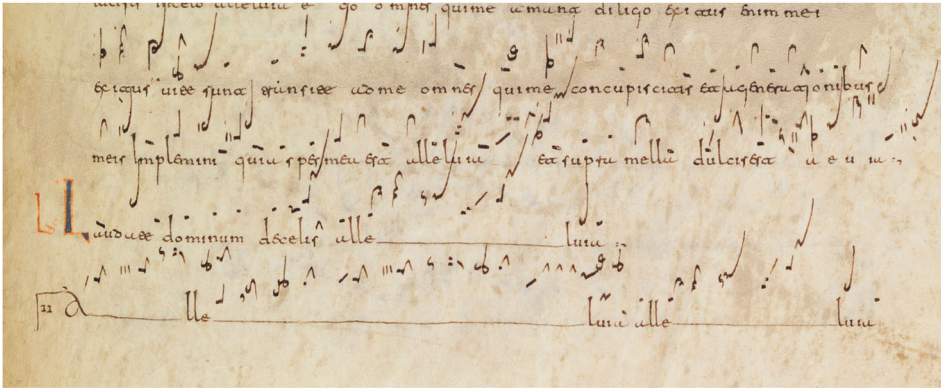 alleluia ego omnes quime amant diligo exitus enim mei
exitus uite sunt transite adme omnes quime concupiscitis et a generationibus
meis Implemini quia sps meus est alleluia et super mellũ dulcis est a e u i a
Laudate dominum de celis alle luia
II Alle luia alle luia